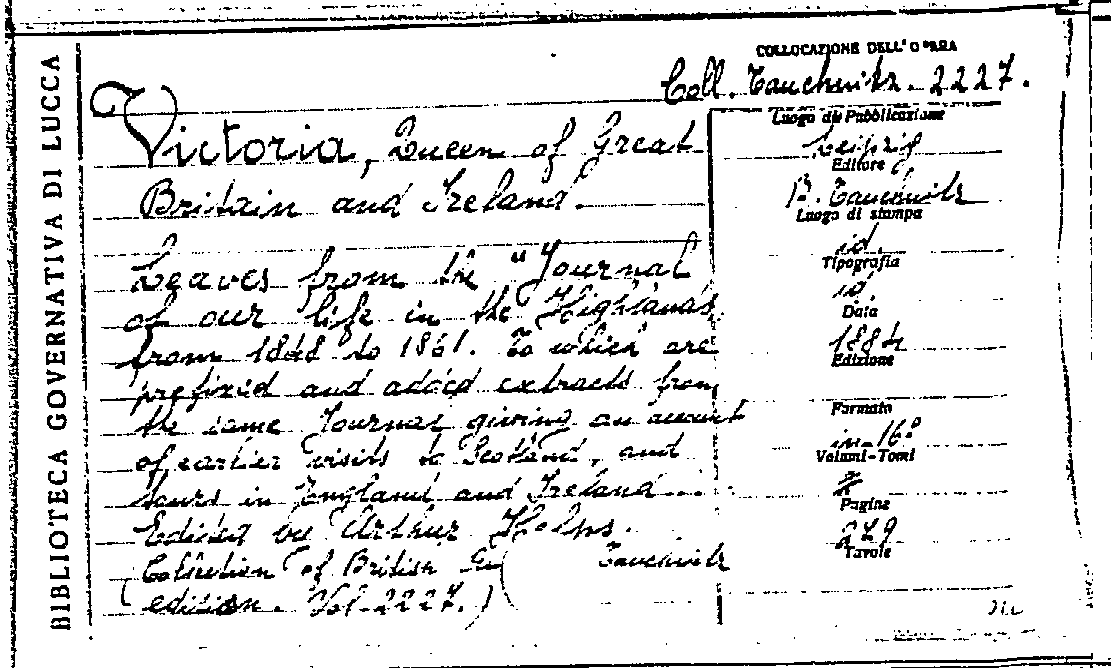 BIBLIOTECA GOVERNATIVA DI LUCCA
COLLOCAZIONE DELL'OPERA
Coll. Tauchnitz. 2227.
Victoria, Queen of Great
Britain and Ireland.
Leaves from the "Journal
of our life in the Highlands
from 1848 to 1861. To which are
prefixed and added extracts from
the same Journal giving an account
of earlier visits to Scotland, and
tours in England and Ireland....
Edited by Arthur Helps.
(Collection of British Tauchnitz
edition. Vol. 2227.)
Luogo di Pubblicazione
Leipzig
Editore
B. Tauchnitz
Luogo di stampa
id
Tipografia
id
Data
1884
Edizione
Formato
in-16°
Volumi-Tomi
Pagine
279
Tavole